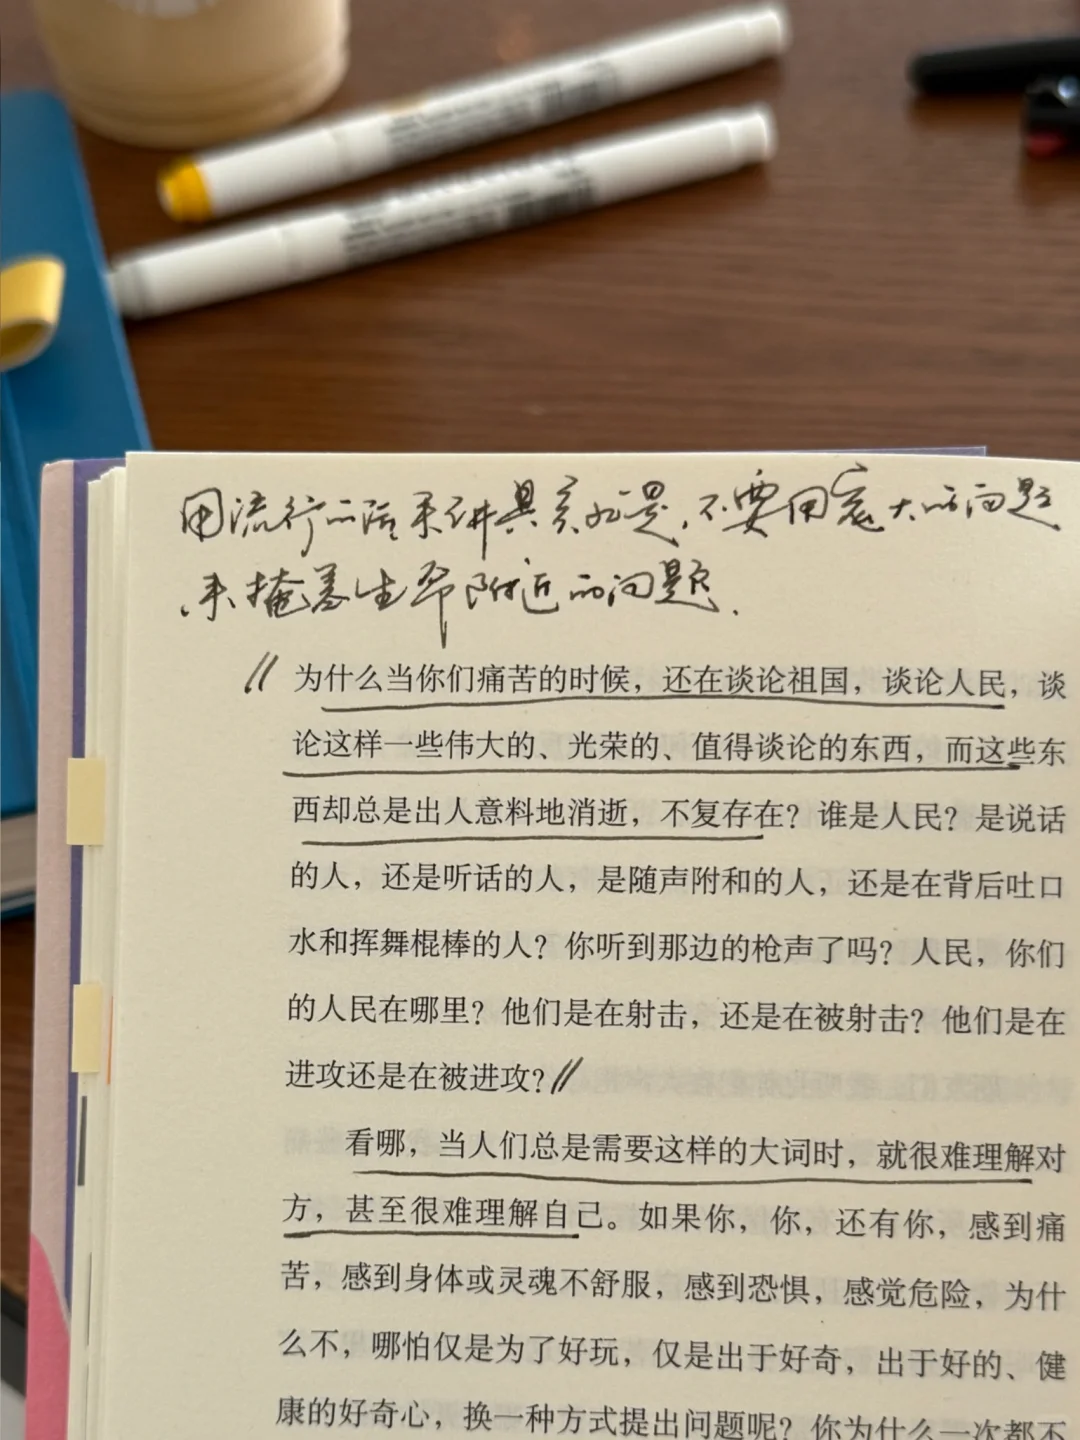 用流行的话来讲其实就是，不要用宏大的问题
来掩盖生命附近的问题．
为什么当你们痛苦的时候，还在谈论祖国，谈论人民，谈
论这样一些伟大的、光荣的、值得谈论的东西，而这些东
西却总是出人意料地消逝，不复存在？谁是人民？是说话
的人，还是听话的人，是随声附和的人，还是在背后吐口
水和挥舞棍棒的人？你听到那边的枪声了吗？人民，你们
的人民在哪里？他们是在射击，还是在被射击？他们是在
进攻还是在被进攻？
看哪，当人们总是需要这样的大词时，就很难理解对
方，甚至很难理解自己。如果你，你，还有你，感到痛
苦，感到身体或灵魂不舒服，感到恐惧，感觉危险，为什
么不，哪怕仅是为了好玩，仅是出于好奇，出于好的、健
康的好奇心，换一种方式提出问题呢？你为什么一次都不